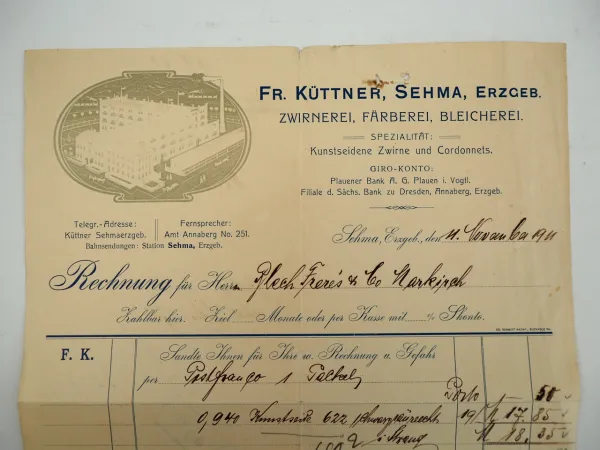 Fr. Küttner, Sehma, Erzgeb.
Zwirnerei, Färberei, Bleicherei.
Spezialität:
Kunstseidene Zwirne und Cordonnets.
Giro-Konto:
Plauener Bank A. G. Plauen i. Vogtl.
Filiale d. Sächs. Bank zu Dresden, Annaberg, Erzgeb.
Telegr.-Adresse:
Küttner Sehmaerzgeb.
Fernsprecher:
Amt Annaberg No. 251.
Bahnsendungen: Station Sehma, Erzgeb.
Sehma, Erzgeb., den 4. November 1911
Rechnung für Herrn Blech Frerés & Co Markirch
Zahlbar hier. Ziel Monate oder per Kasse mit % Skonto.
F. K.
Sandte Ihnen für Ihre w. Rechnung u. Gefahr
per Postfranco 1 Packet
Porto 50
0,940 Kunstseide 622 19/ M 17.85
M 18.35